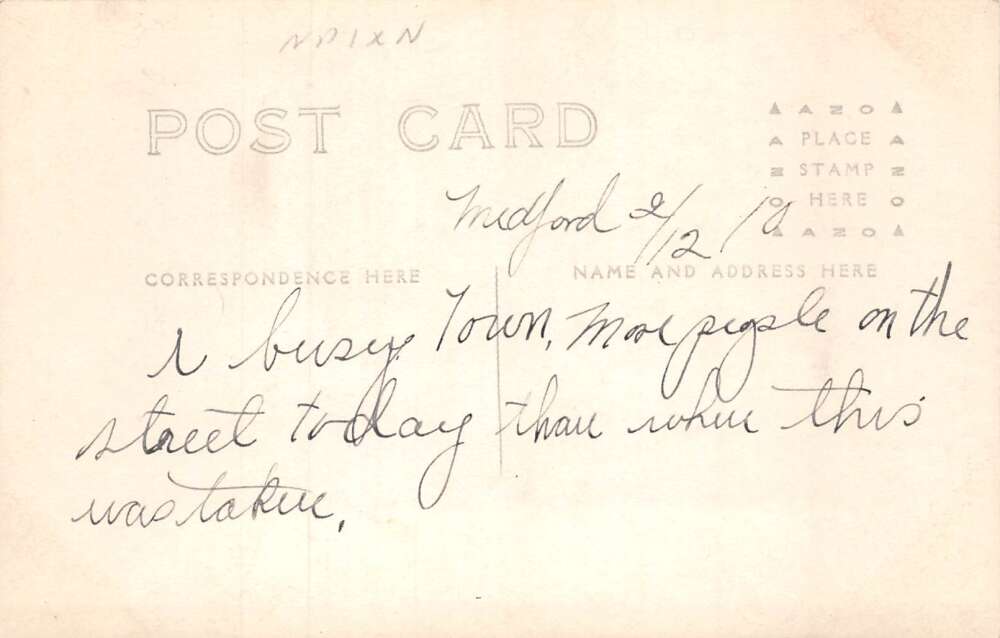 NDIXN
POST CARD
▲ AZO ▲
A PLACE A
Z STAMP Z
O HERE O
▲ AZO ▲
Medford 2/12/10
CORRESPONDENCE HERE
NAME AND ADDRESS HERE
A busy Town, More people on the
street today than when this
was taken.